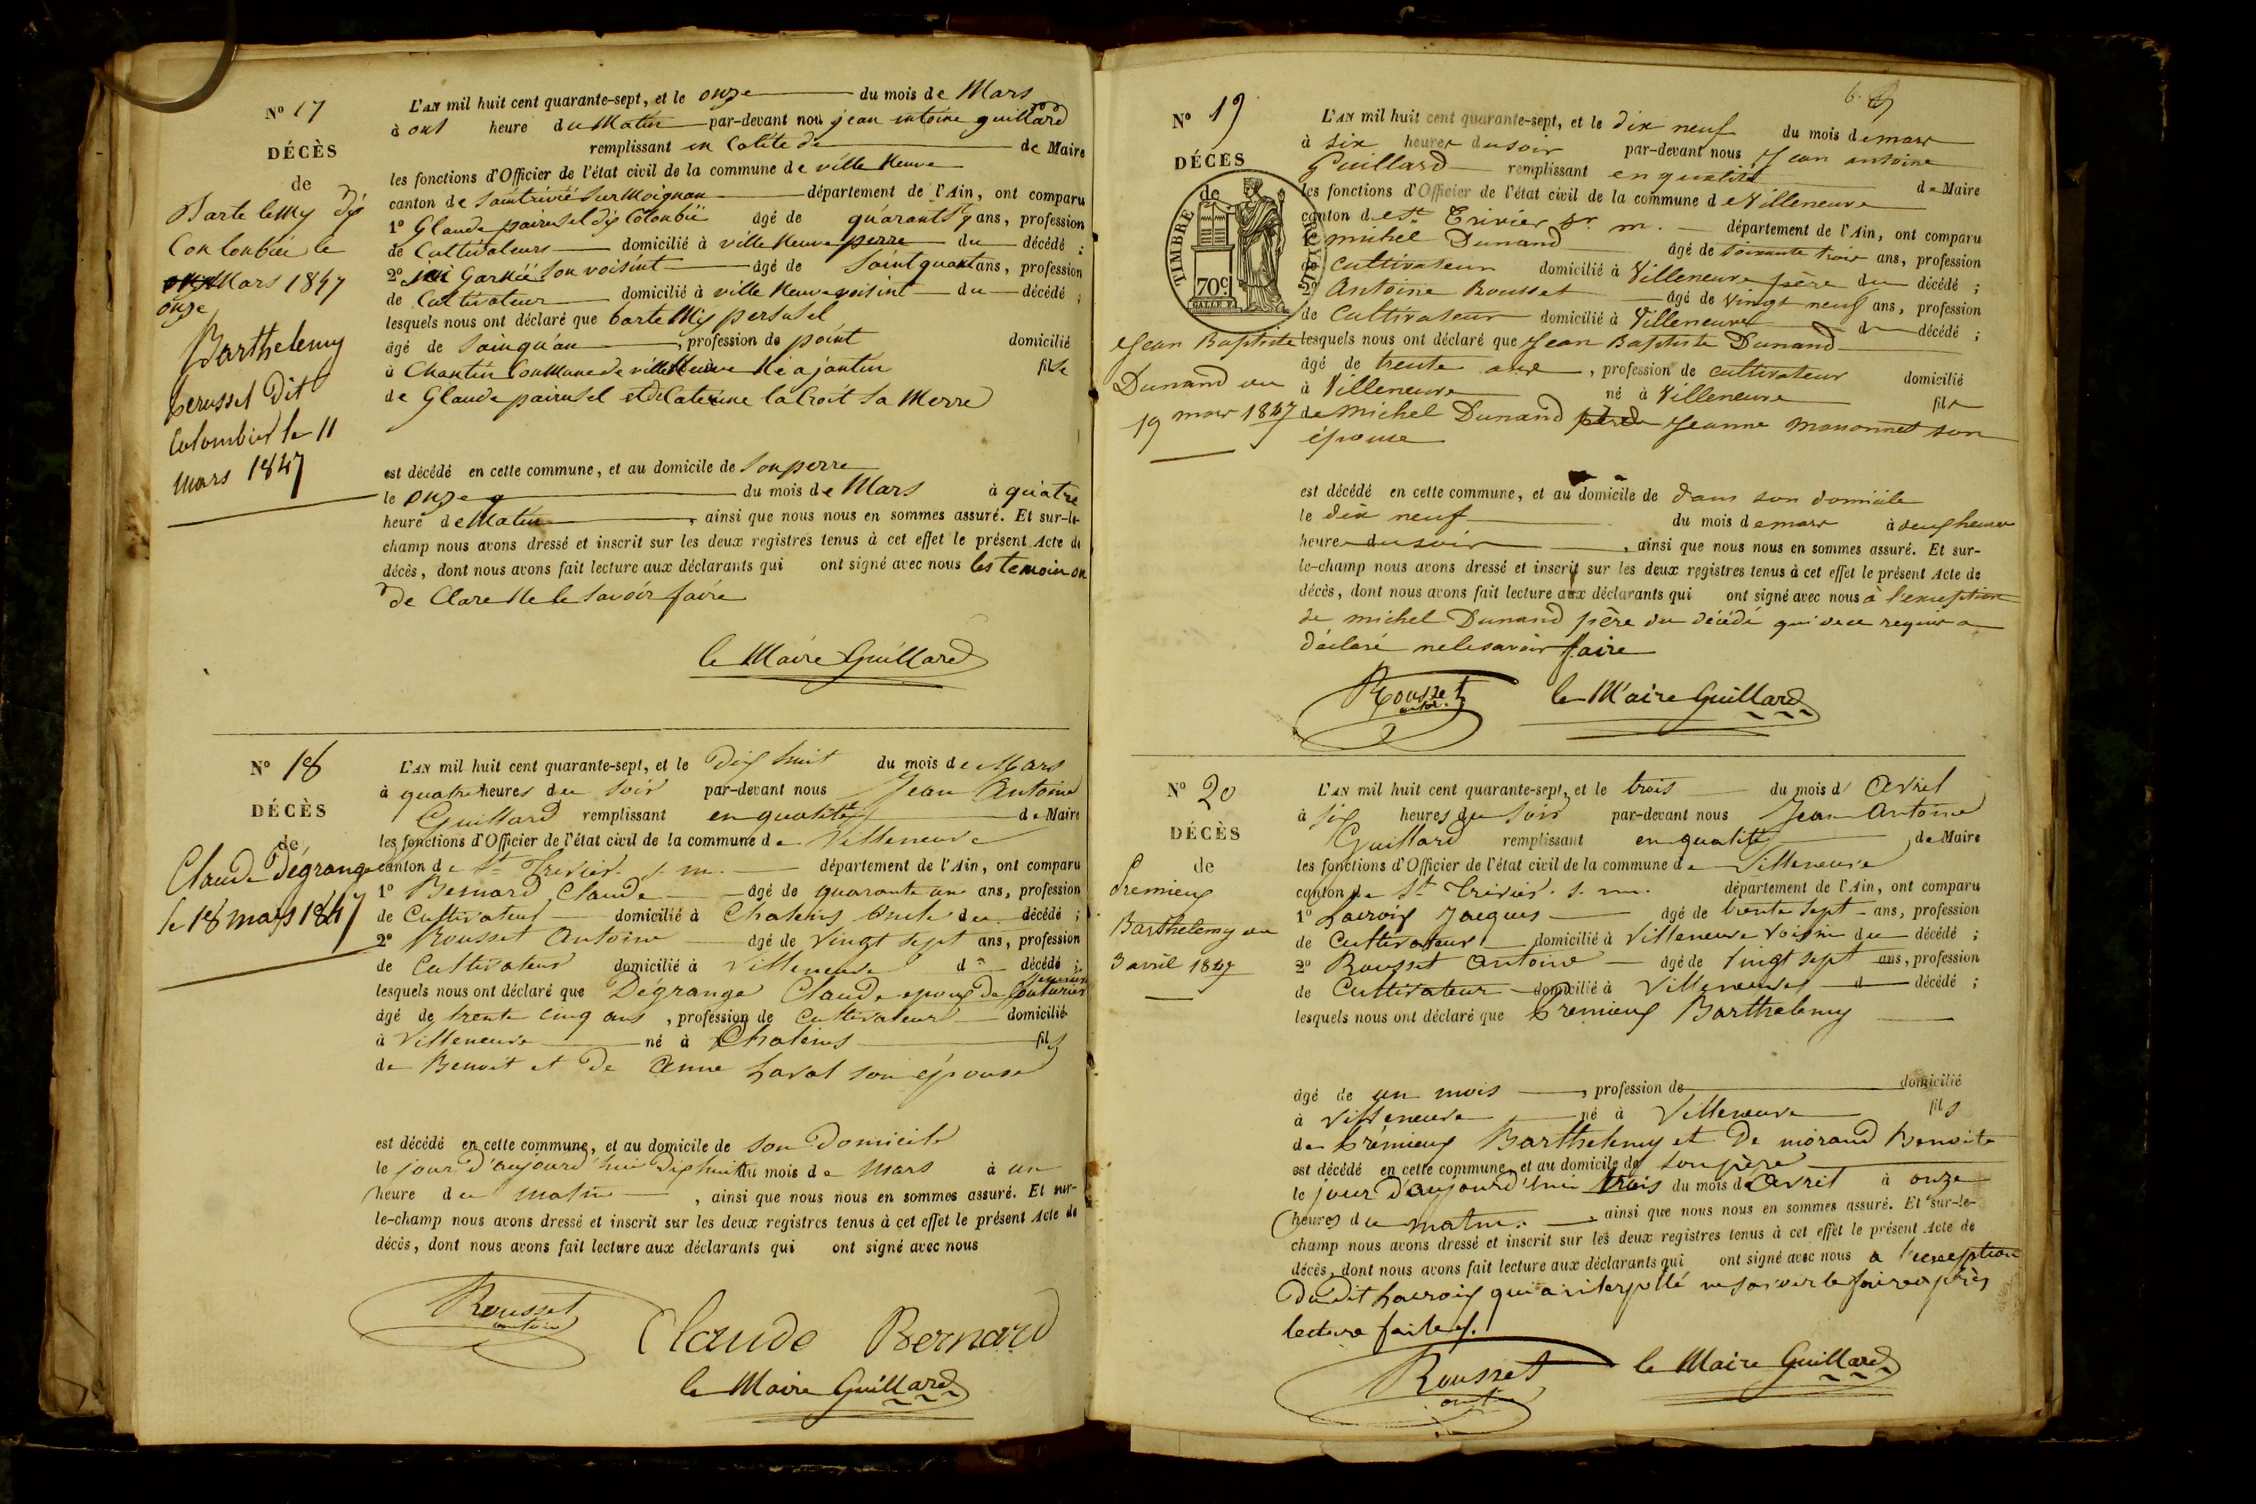 Nº 17
DÉCÈS
de
Barte lemy dis
Con lonbieu le
Mars 1847
onze
Barthelemy
perussel Dit
Colombier le 11
mars 1847
L'AN mil huit cent quarante-sept, et le onze du mois de Mars
à ont heure du Matin par-devant nou jean intoine guillard
remplissant en Catite de de Maire
les fonctions d'Officier de l'état civil de la commune de ville Neuve
canton de Saintrivié Sur Moignan département de l'Ain, ont comparu
1º Glaude pairusel dis Colonbié âgé de quarant ans, profession
de Cultivateurs domicilié à ville Neuve perre du décédé ;
2º Garnié Son voisint âgé de Saint quant ans, profession
de Cultivateur domicilié à ville Neuve voisint du décédé ;
lesquels nous ont déclaré que barte Miy persusel
âgé de Sainqu'an , profession de point domicilié
à Chantin Conmune de ville Neuve Né a jantin fils
de Glaude pairusel et de Caterine la Croit Sa Merre
est décédé en cette commune, et au domicile de Son perre
le onze du mois de Mars à quiatre
heure de Matin , ainsi que nous nous en sommes assuré. Et sur-le-
champ nous avons dressé et inscrit sur les deux registres tenus à cet effet le présent Acte de
décès, dont nous avons fait lecture aux déclarants qui ont signé avec nous les temoin on
de Clare Ne le Savoir faire
le Maire Guillard
Nº 18
DÉCÈS
de
Claude Dégrange
le 18 mars 1847
L'AN mil huit cent quarante-sept, et le Dix huit du mois de Mars
à quatre heures du Soir par-devant nous Jean Antoine
Guillard remplissant en qualité de Maire
les fonctions d'Officier de l'état civil de la commune de Villeneuve
canton de St Trivier s. m. département de l'Ain, ont comparu
1º Bernard Claude âgé de quarante un ans, profession
de Cultivateur domicilié à Chaleins oncle du décédé ;
2º Rousset Antoine âgé de vingt sept ans, profession
de Cultivateur domicilié à Villeneuve d décédé ;
lesquels nous ont déclaré que Dégrange Claude epoux de Couturier
âgé de trente cinq ans , profession de Cultivateur domicilié
à Villeneuve né à Chaleins fils
de Benoit et De Anne Laval son épouse
est décédé en cette commune, et au domicile de son Domicile
le jour d'aujourd'hui Dix huit du mois de mars à un
heure du matin , ainsi que nous nous en sommes assuré. Et sur-
le-champ nous avons dressé et inscrit sur les deux registres tenus à cet effet le présent Acte de
décès, dont nous avons fait lecture aux déclarants qui ont signé avec nous
Rousset
antoine
Claude Bernard
le Maire Guillard
Nº 19
DÉCES
de
TIMBRE
70c
Jean Baptiste
Dunand du
19 mars 1847
L'AN mil huit cent quarante-sept, et le dix neuf du mois de mars
à six heures du soir par-devant nous Jean antoine
Guillard remplissant en qualité de Maire
les fonctions d'Officier de l'état civil de la commune de Villeneuve
canton de St Trivier sr m. département de l'Ain, ont comparu
1º michel Dunand âgé de soixante trois ans, profession
de cultivateur domicilié à Villeneuve père du décédé ;
2º Antoine Rousset âgé de vingt neuf ans, profession
de Cultivateur domicilié à Villeneuve d décédé ;
lesquels nous ont déclaré que Jean Baptiste Dunand
âgé de trente ans , profession de cultivateur domicilié
à Villeneuve né à Villeneuve fils
de michel Dunand Jeanne monomet son
épouse
est décédé en cette commune, et au domicile de dans son domicile
le dix neuf du mois de mars à deux heures
heures du soir , ainsi que nous nous en sommes assuré. Et sur-
le-champ nous avons dressé et inscrit sur les deux registres tenus à cet effet le présent Acte de
décès, dont nous avons fait lecture aux déclarants qui ont signé avec nous à l'exception
de michel Dunand père du décédé qui de ce requis a
déclaré ne le savoir faire
Rousset
antoi.
le Maire Guillard
Nº 20
DÉCÈS
de
Premieux
Barthelemy du
3 avril 1847
L'AN mil huit cent quarante-sept, et le trois du mois d' Avril
à six heures du Soir par-devant nous Jean Antoine
Guillard remplissant en qualité de Maire
les fonctions d'Officier de l'état civil de la commune de Villeneuve
canton de St Trivier. s. m. département de l'Ain, ont comparu
1º Lacroix Jacques âgé de trente sept ans, profession
de Cultivateur domicilié à Villeneuve voisin du décédé ;
2º Rousset Antoine âgé de vingt sept ans, profession
de Cultivateur domicilié à Villeneuve d décédé ;
lesquels nous ont déclaré que Premieux Barthelemy
âgé de un mois , profession de domicilié
à Villeneuve né à Villeneuve fils
de Prémieux Barthelemy et De morand Benoite
est décédé en cette commune, et au domicile de son père
le jour d'aujourd'hui trois du mois d'Avril à onze
heures du matin. , ainsi que nous nous en sommes assuré. Et sur-le-
champ nous avons dressé et inscrit sur les deux registres tenus à cet effet le présent Acte de
décès, dont nous avons fait lecture aux déclarants qui ont signé avec nous a l'exception
Du Dit Lacroix qui a interpellé ne savoir le faire après
lecture faite.
Rousset
ant
le Maire Guillard